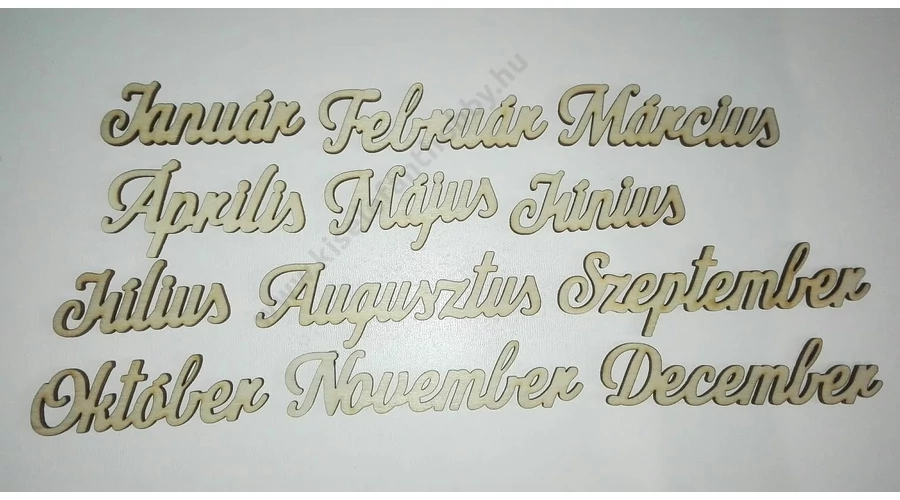 Január Február Március
Április Május Június
Július Augusztus Szeptember
Október November December